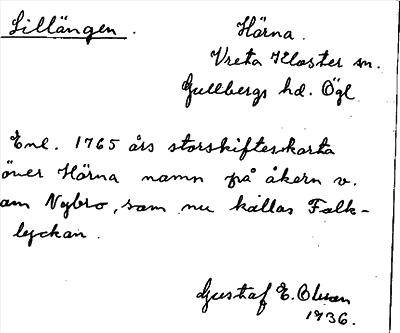 Lillängen. Härna.
Vreta Kloster sn.
Gullbergs hd. Ögl.
Enl. 1765 års storskifteskarta
över Härna namn på åkern v.
om Nybro, som nu kallas Falk-
lyckan.
Gustaf E. Olsson
1936.